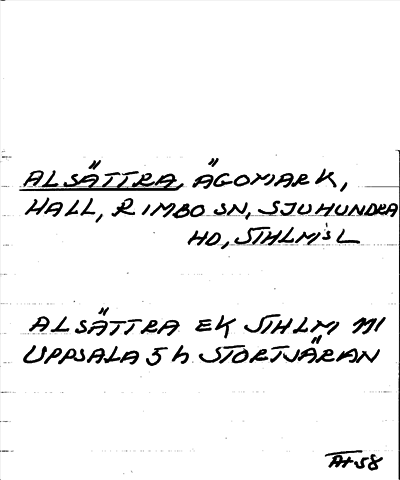 ALSÄTTRA, ÄGOMARK,
HALL, RIMBO SN, SJUHUNDRA
HD, STHLM'S L
ALSÄTTRA EK STHLM 111
UPPSALA 5 h STORTJÄRAN
ÄH 58